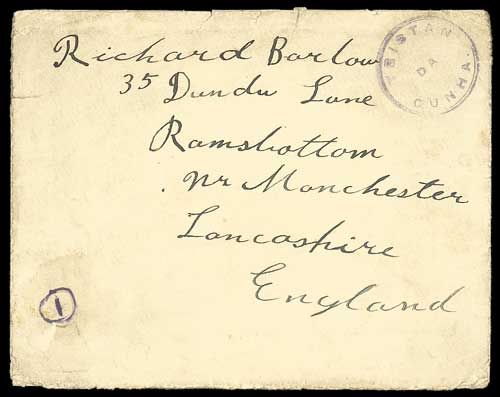 Richard Barlow
35 Dundu Lane
Ramsbottom
nr Manchester
Lancashire
England
TRISTAN
DA
CUNHA
1